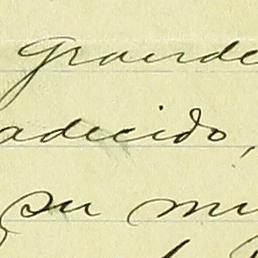 grande
adecido,
su mu